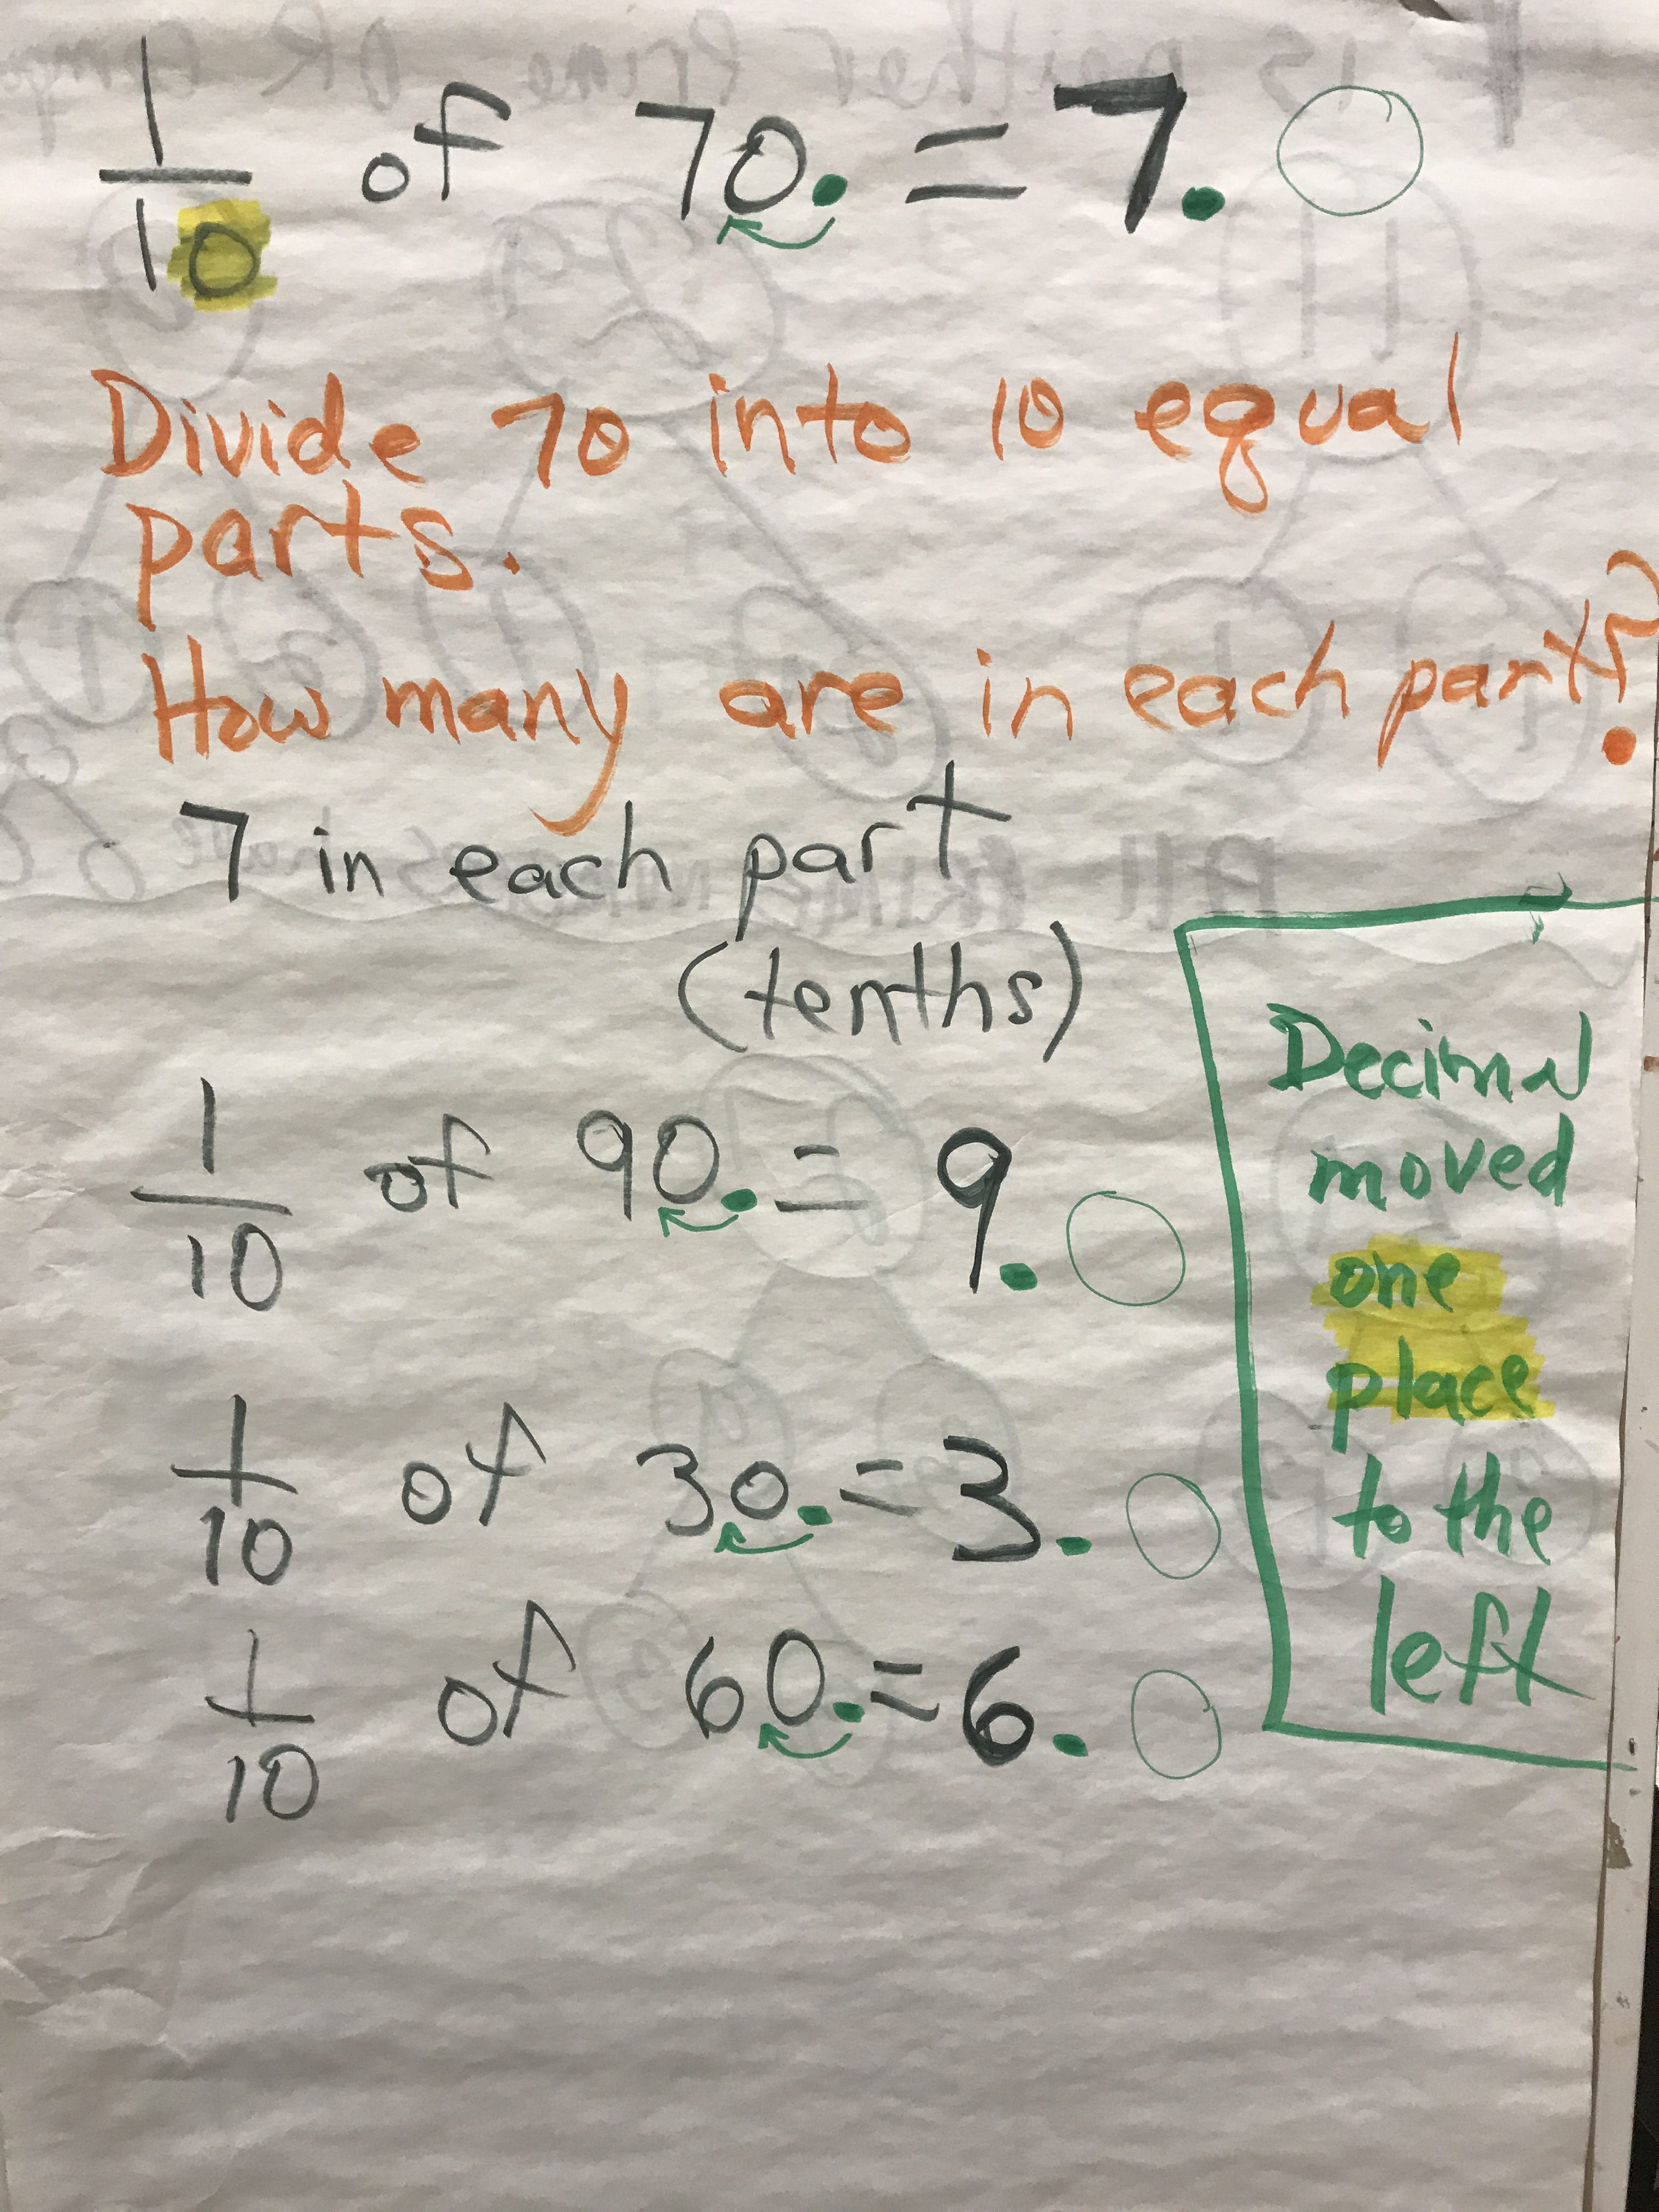 1/10 of 70. = 7.
Divide 70 into 10 equal
parts.
How many are in each part?
7 in each part
(tenths)
1/10 of 90. = 9.
1/10 of 30. = 3.
1/10 of 60. = 6.
Decimal
moved
one
place
to the
left